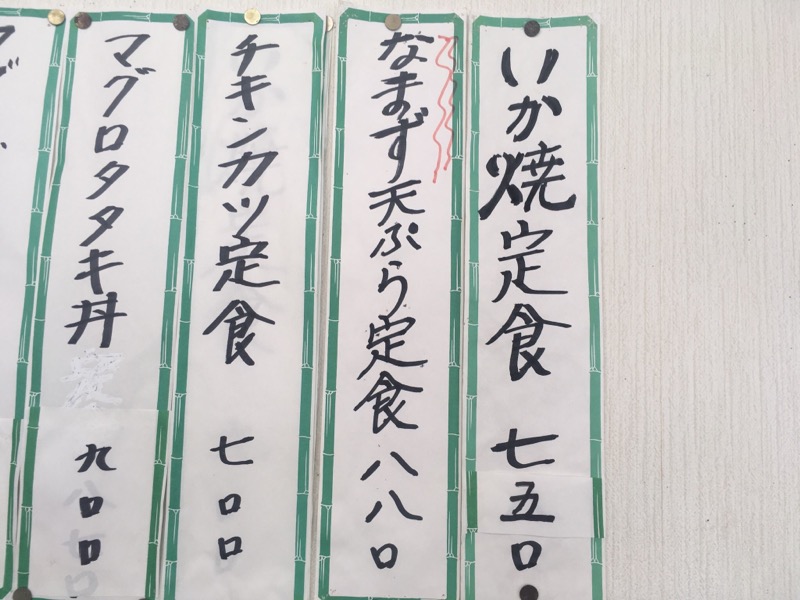 いか焼定食 七五〇
なまず天ぷら定食 八八〇
チキンカツ定食 七〇〇
マグロタタキ丼 九〇〇